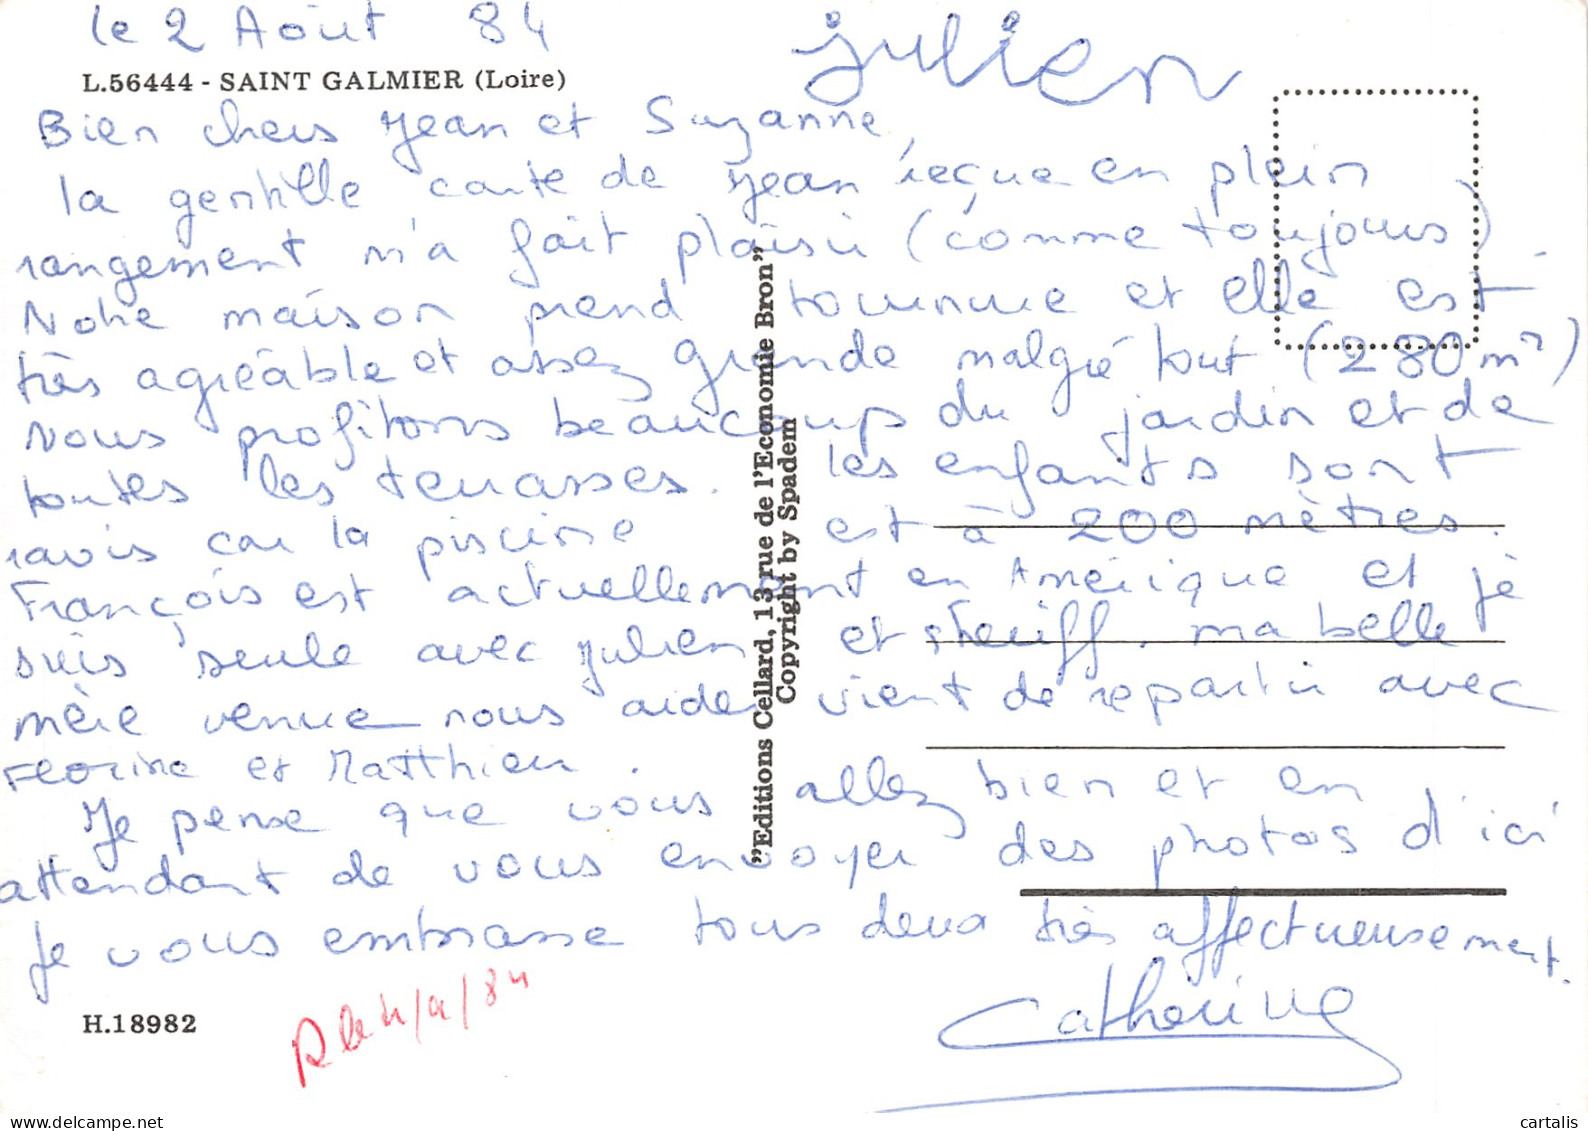 le 2 Août 84
julien
L.56444 - SAINT GALMIER (Loire)
Bien chers Jean et Suzanne,
la gentille carte de Jean reçue en plein
rangement m'a fait plaisir (comme toujours).
Notre maison prend tournure et elle est
très agréable et assez grande malgré tout (280 m²)
Nous profitons beaucoup du jardin et de
toutes les terrasses. les enfants sont
ravis car la piscine est à 200 mètres.
François est actuellement en Amérique et je
suis seule avec Julien et sheriff. ma belle
mère venue nous aider vient de repartir avec
Florine et Matthieu.
Je pense que vous allez bien et en
attendant de vous envoyer des photos d'ici
je vous embrasse tous deux très affectueusement.
Catherine
"Editions Cellard, 13 rue de l'Economie Bron"
Copyright by Spadem
H.18982
cartalis